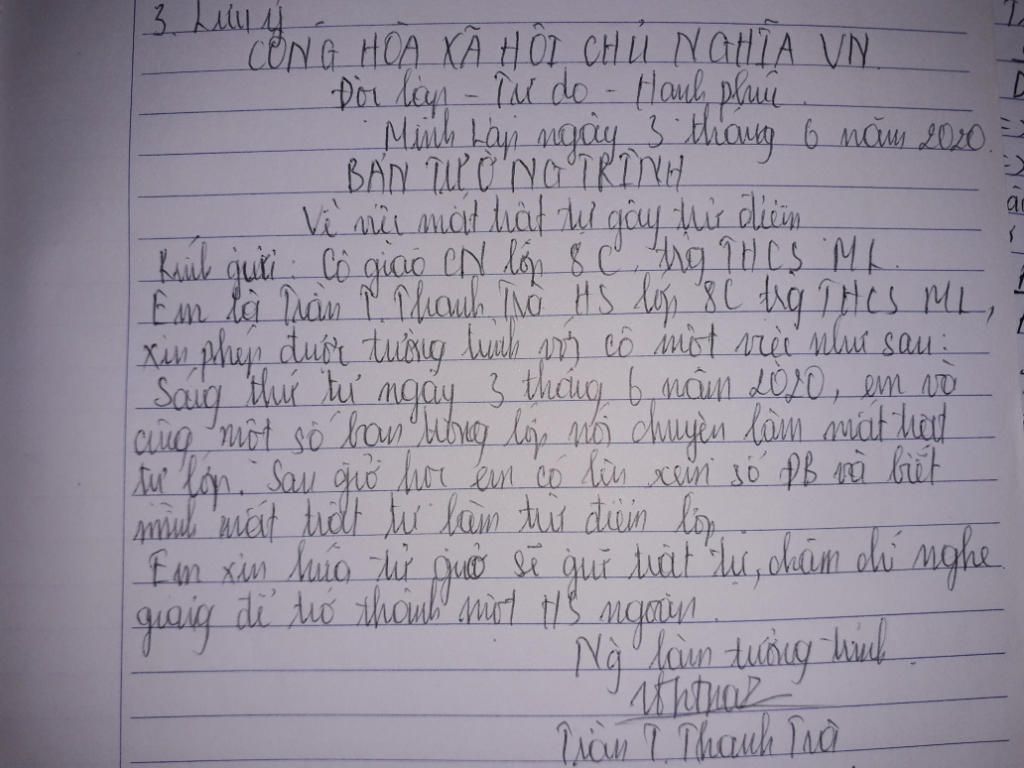 3. Lưu ý
CỘNG HÒA XÃ HỘI CHỦ NGHĨA VN
Độc lập - Tự do - Hạnh phúc
Minh Lập ngày 3 tháng 6 năm 2020
BẢN TƯỜNG TRÌNH
Về việc mất trật tự gây trừ điểm
Kính gửi: Cô giáo CN lớp 8C, trg THCS ML.
Em là Trần T. Thanh Trà HS lớp 8C trg THCS ML,
xin phép được tường trình với cô một việc như sau:
Sáng thứ tư ngày 3 tháng 6 năm 2020, em và
cùng một số bạn trong lớp nói chuyện làm mất trật
tự lớp. Sau giờ học em có lên xem sổ ĐB và biết
mình mất trật tự làm trừ điểm lớp
Em xin hứa từ giờ sẽ giữ trật tự, chăm chỉ nghe
giảng để trở thành một HS ngoan.
Ng làm tường trình
Trần T. Thanh Trà